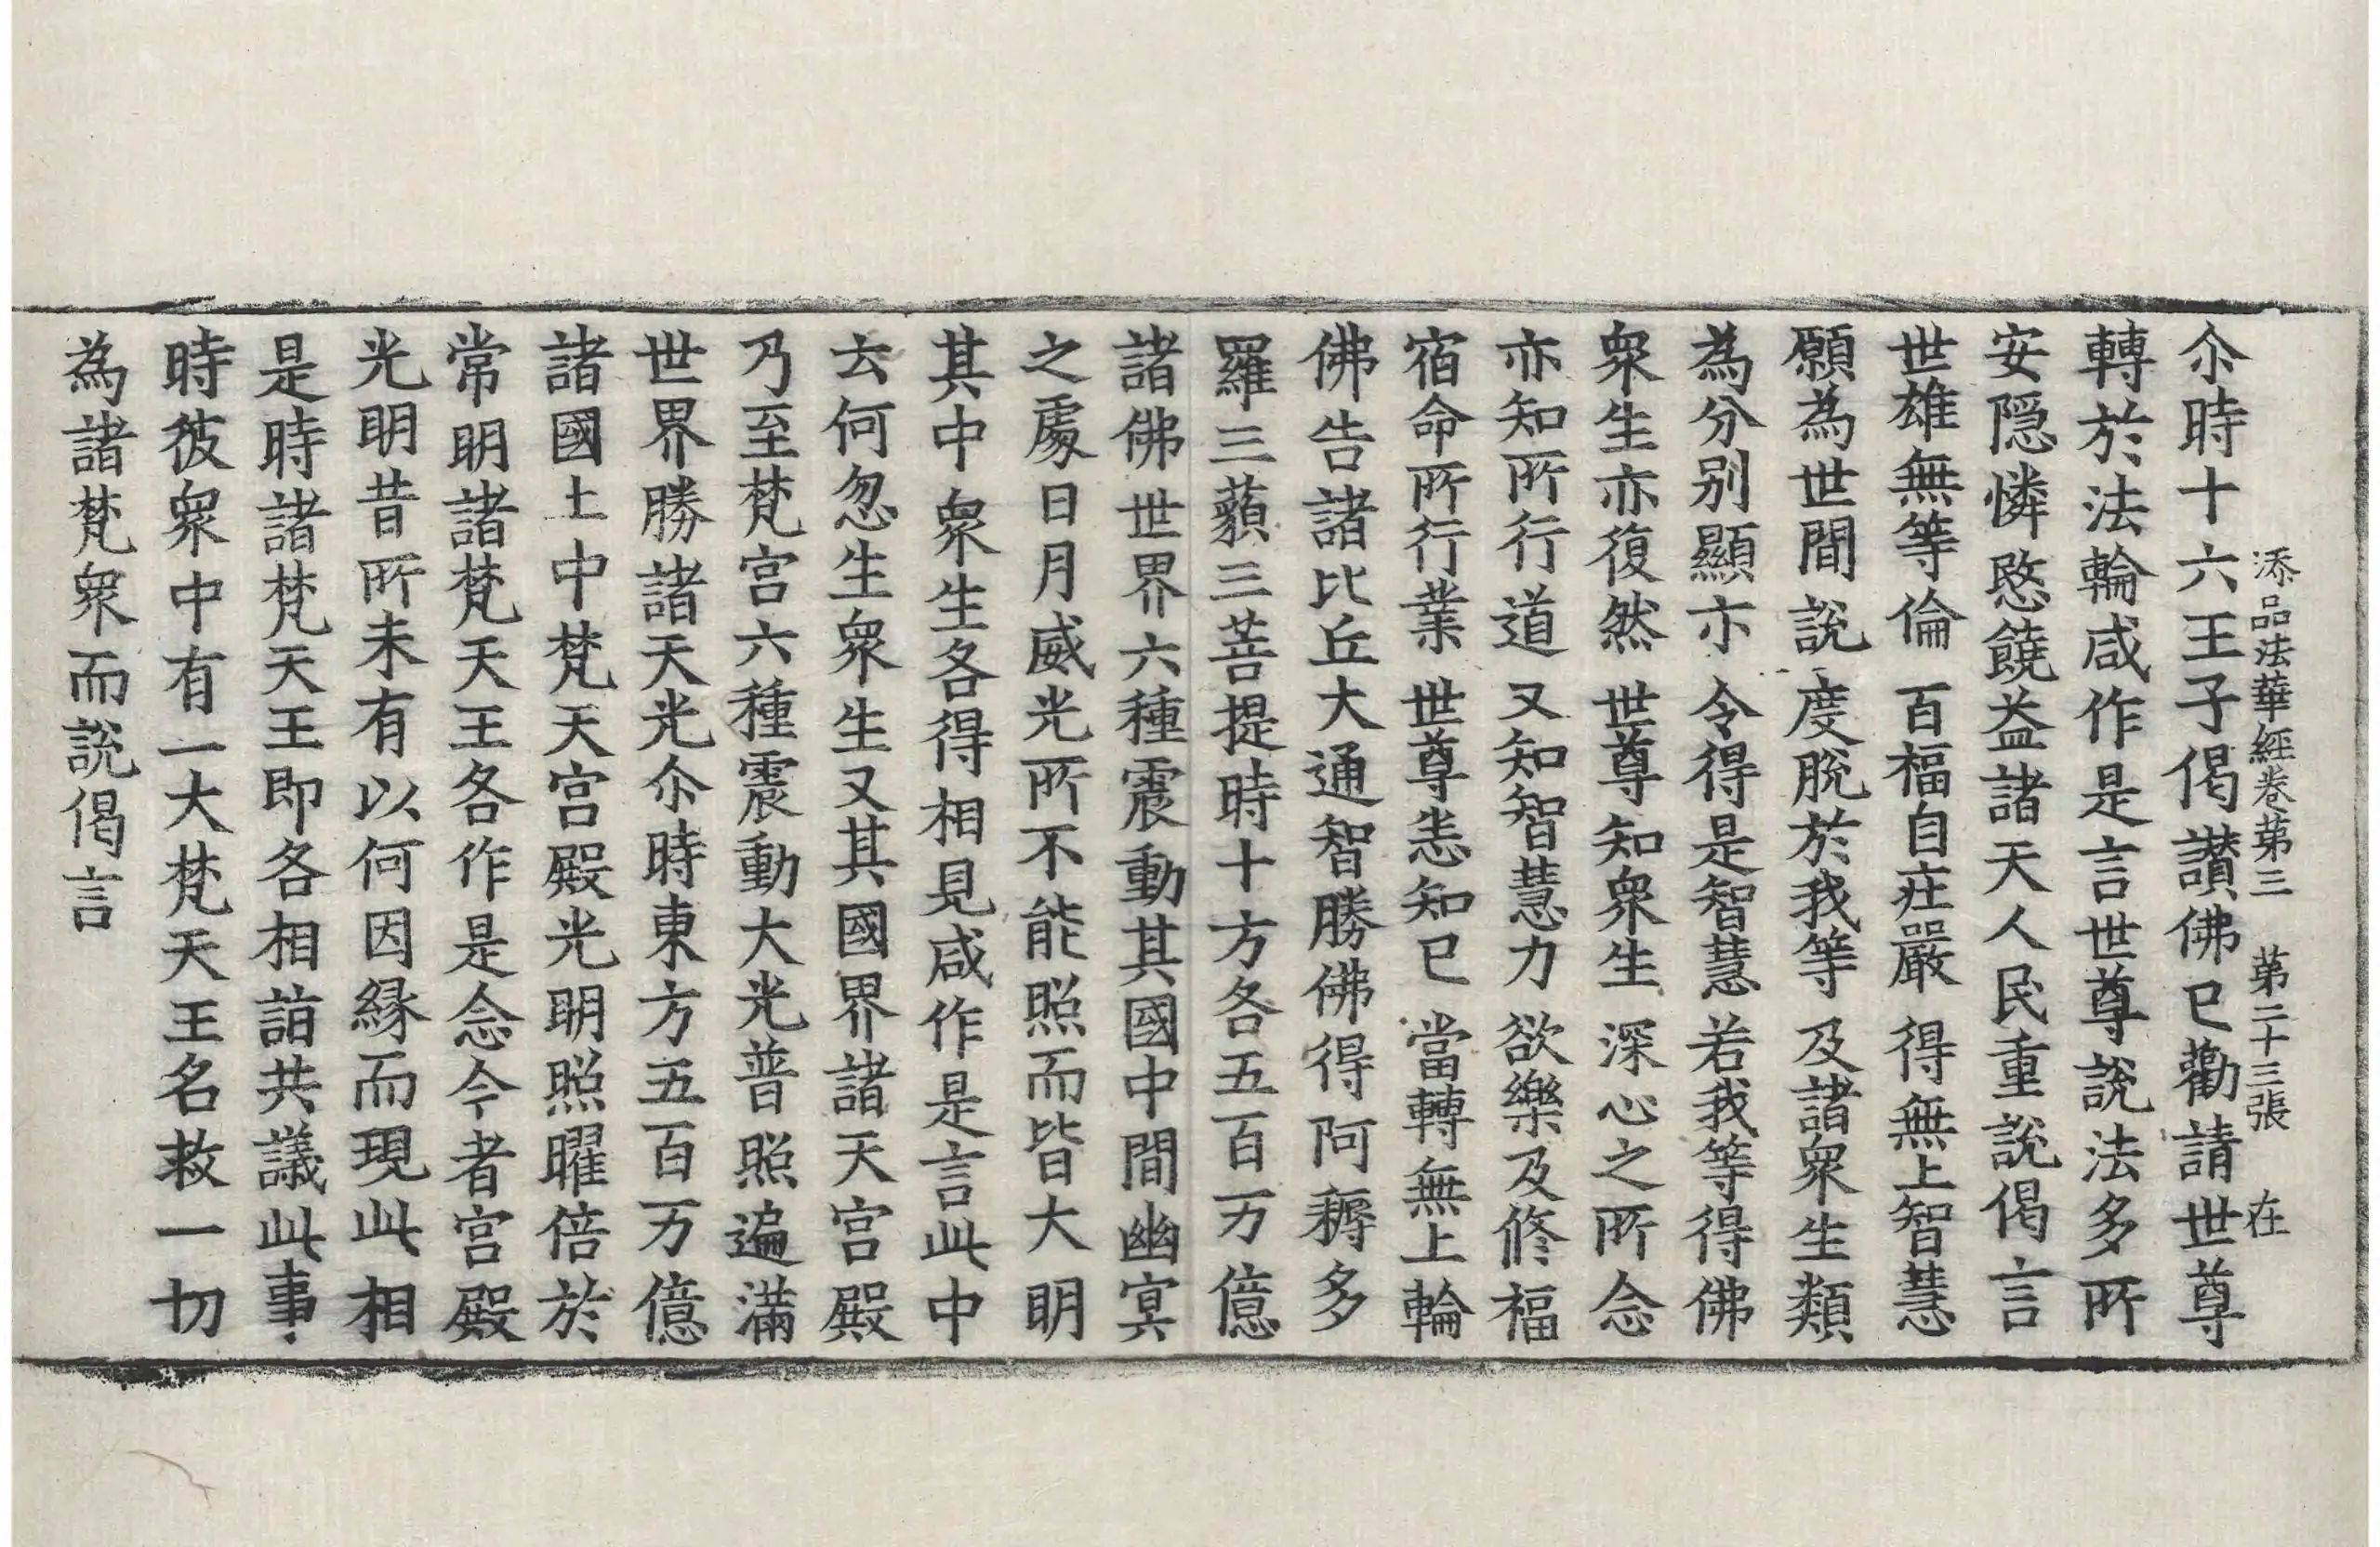 添品法華經卷第三　第二十三張　在
尒時十六王子偈讚佛已勸請世尊
轉於法輪咸作是言世尊說法多所
安隠憐愍饒益諸天人民重說偈言
世雄無等倫　百福自莊嚴　得無上智慧
願為世間說　度脫於我等　及諸衆生類
為分別顯示　令得是智慧　若我等得佛
衆生亦復然　世尊知衆生　深心之所念
亦知所行道　又知智慧力　欲樂及修福
宿命所行業　世尊悉知已　當轉無上輪
佛告諸比丘大通智勝佛得阿耨多
羅三藐三菩提時十方各五百万億
諸佛世界六種震動其國中間幽冥
之處日月威光所不能照而皆大明
其中衆生各得相見咸作是言此中
云何忽生衆生又其國界諸天宮殿
乃至梵宮六種震動大光普照遍滿
世界勝諸天光尒時東方五百万億
諸國土中梵天宮殿光明照曜倍於
常明諸梵天王各作是念今者宮殿
光明昔所未有以何因緣而現此相
是時諸梵天王即各相詣共議此事
時彼衆中有一大梵天王名救一切
為諸梵衆而說偈言